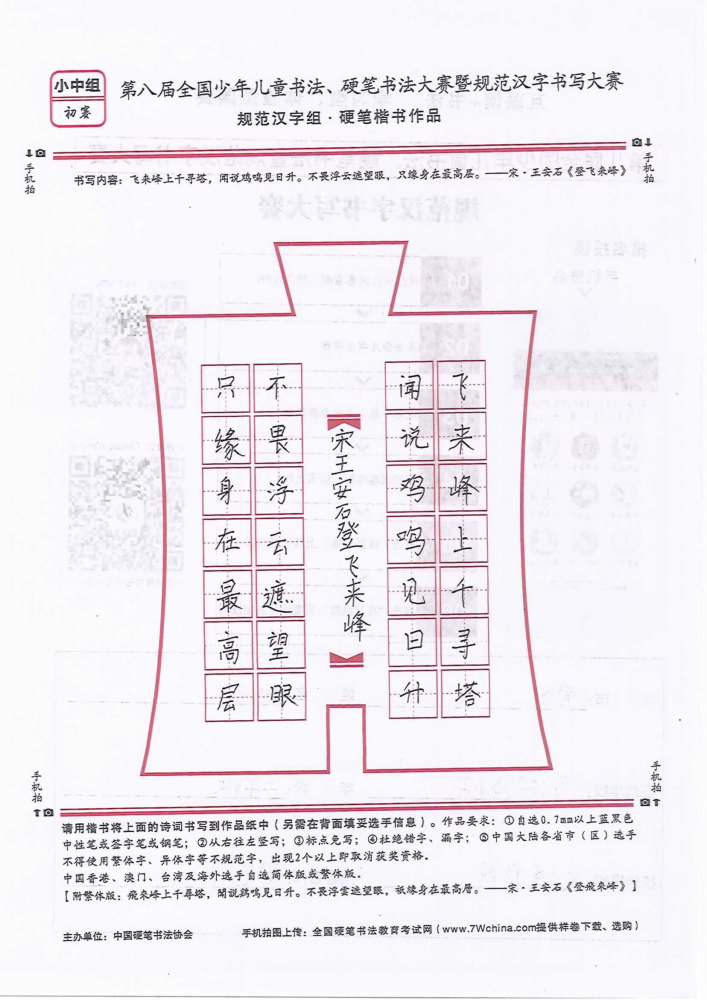 小中组
初赛
第八届全国少年儿童书法、硬笔书法大赛暨规范汉字书写大赛
规范汉字组·硬笔楷书作品
手机拍
手机拍
书写内容：飞来峰上千寻塔，闻说鸡鸣见日升。不畏浮云遮望眼，只缘身在最高层。——宋·王安石《登飞来峰》
飞来峰上千寻塔
闻说鸡鸣见日升
宋王安石登飞来峰
不畏浮云遮望眼
只缘身在最高层
手机拍
手机拍
请用楷书将上面的诗词书写到作品纸中（另需在背面填妥选手信息）。作品要求：①自选0.7mm以上蓝黑色
中性笔或签字笔或钢笔；②从右往左竖写；③标点免写；④杜绝错字、漏字；⑤中国大陆各省市（区）选手
不得使用繁体字、异体字等不规范字，出现2个以上即取消获奖资格。
中国香港、澳门、台湾及海外选手自选简体版或繁体版。
【附繁体版：飛來峰上千寻塔，聞説鷄鳴見日升。不畏浮雲遮望眼，祇緣身在最高層。——宋·王安石《登飛來峰》】
主办单位：中国硬笔书法协会
手机拍图上传：全国硬笔书法教育考试网（www.7Wchina.com提供样卷下载、选购）